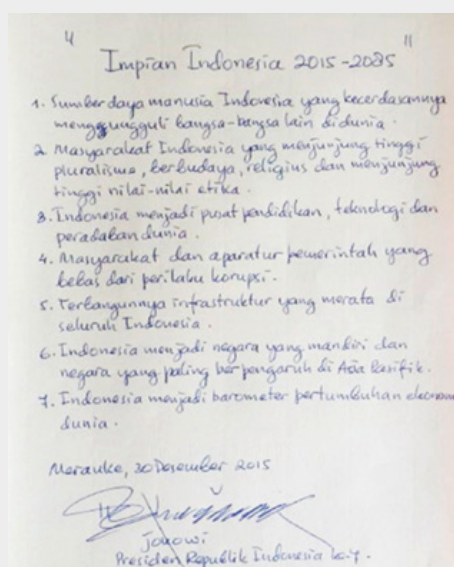 " Impian Indonesia 2015-2085 "
1. Sumber daya manusia Indonesia yang kecerdasannya
mengungguli bangsa-bangsa lain di dunia.
2. Masyarakat Indonesia yang menjunjung tinggi
pluralisme, berbudaya, religius dan menjunjung
tinggi nilai-nilai etika.
3. Indonesia menjadi pusat pendidikan, teknologi dan
peradaban dunia.
4. Masyarakat dan aparatur pemerintah yang
bebas dari perilaku korupsi.
5. Terbangunnya infrastruktur yang merata di
seluruh Indonesia.
6. Indonesia menjadi negara yang mandiri dan
negara yang paling berpengaruh di Asia Pasifik.
7. Indonesia menjadi barometer pertumbuhan ekonomi
dunia.
Merauke, 30 Desember 2015
Jokowi
Presiden Republik Indonesia ke-7.